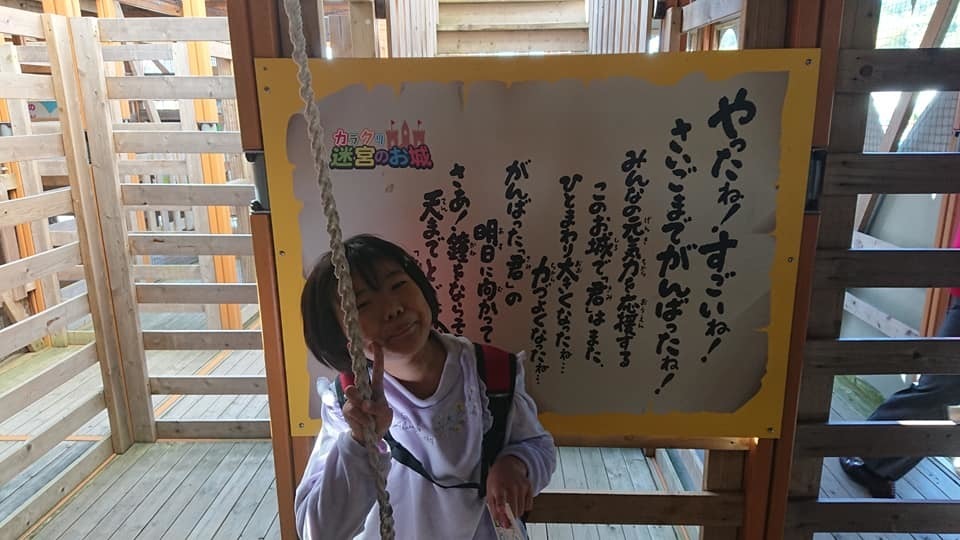 やったね!すごいね!
さいごまでがんばったね!
みんなの元気力を応援する
このお城で、君はまた、
ひとまわり大きくなったね…
力つよくなったね…
がんばった、君」の
明日に向かって
さあ!鐘をならそ
天までとど
カラクリ
迷宮のお城